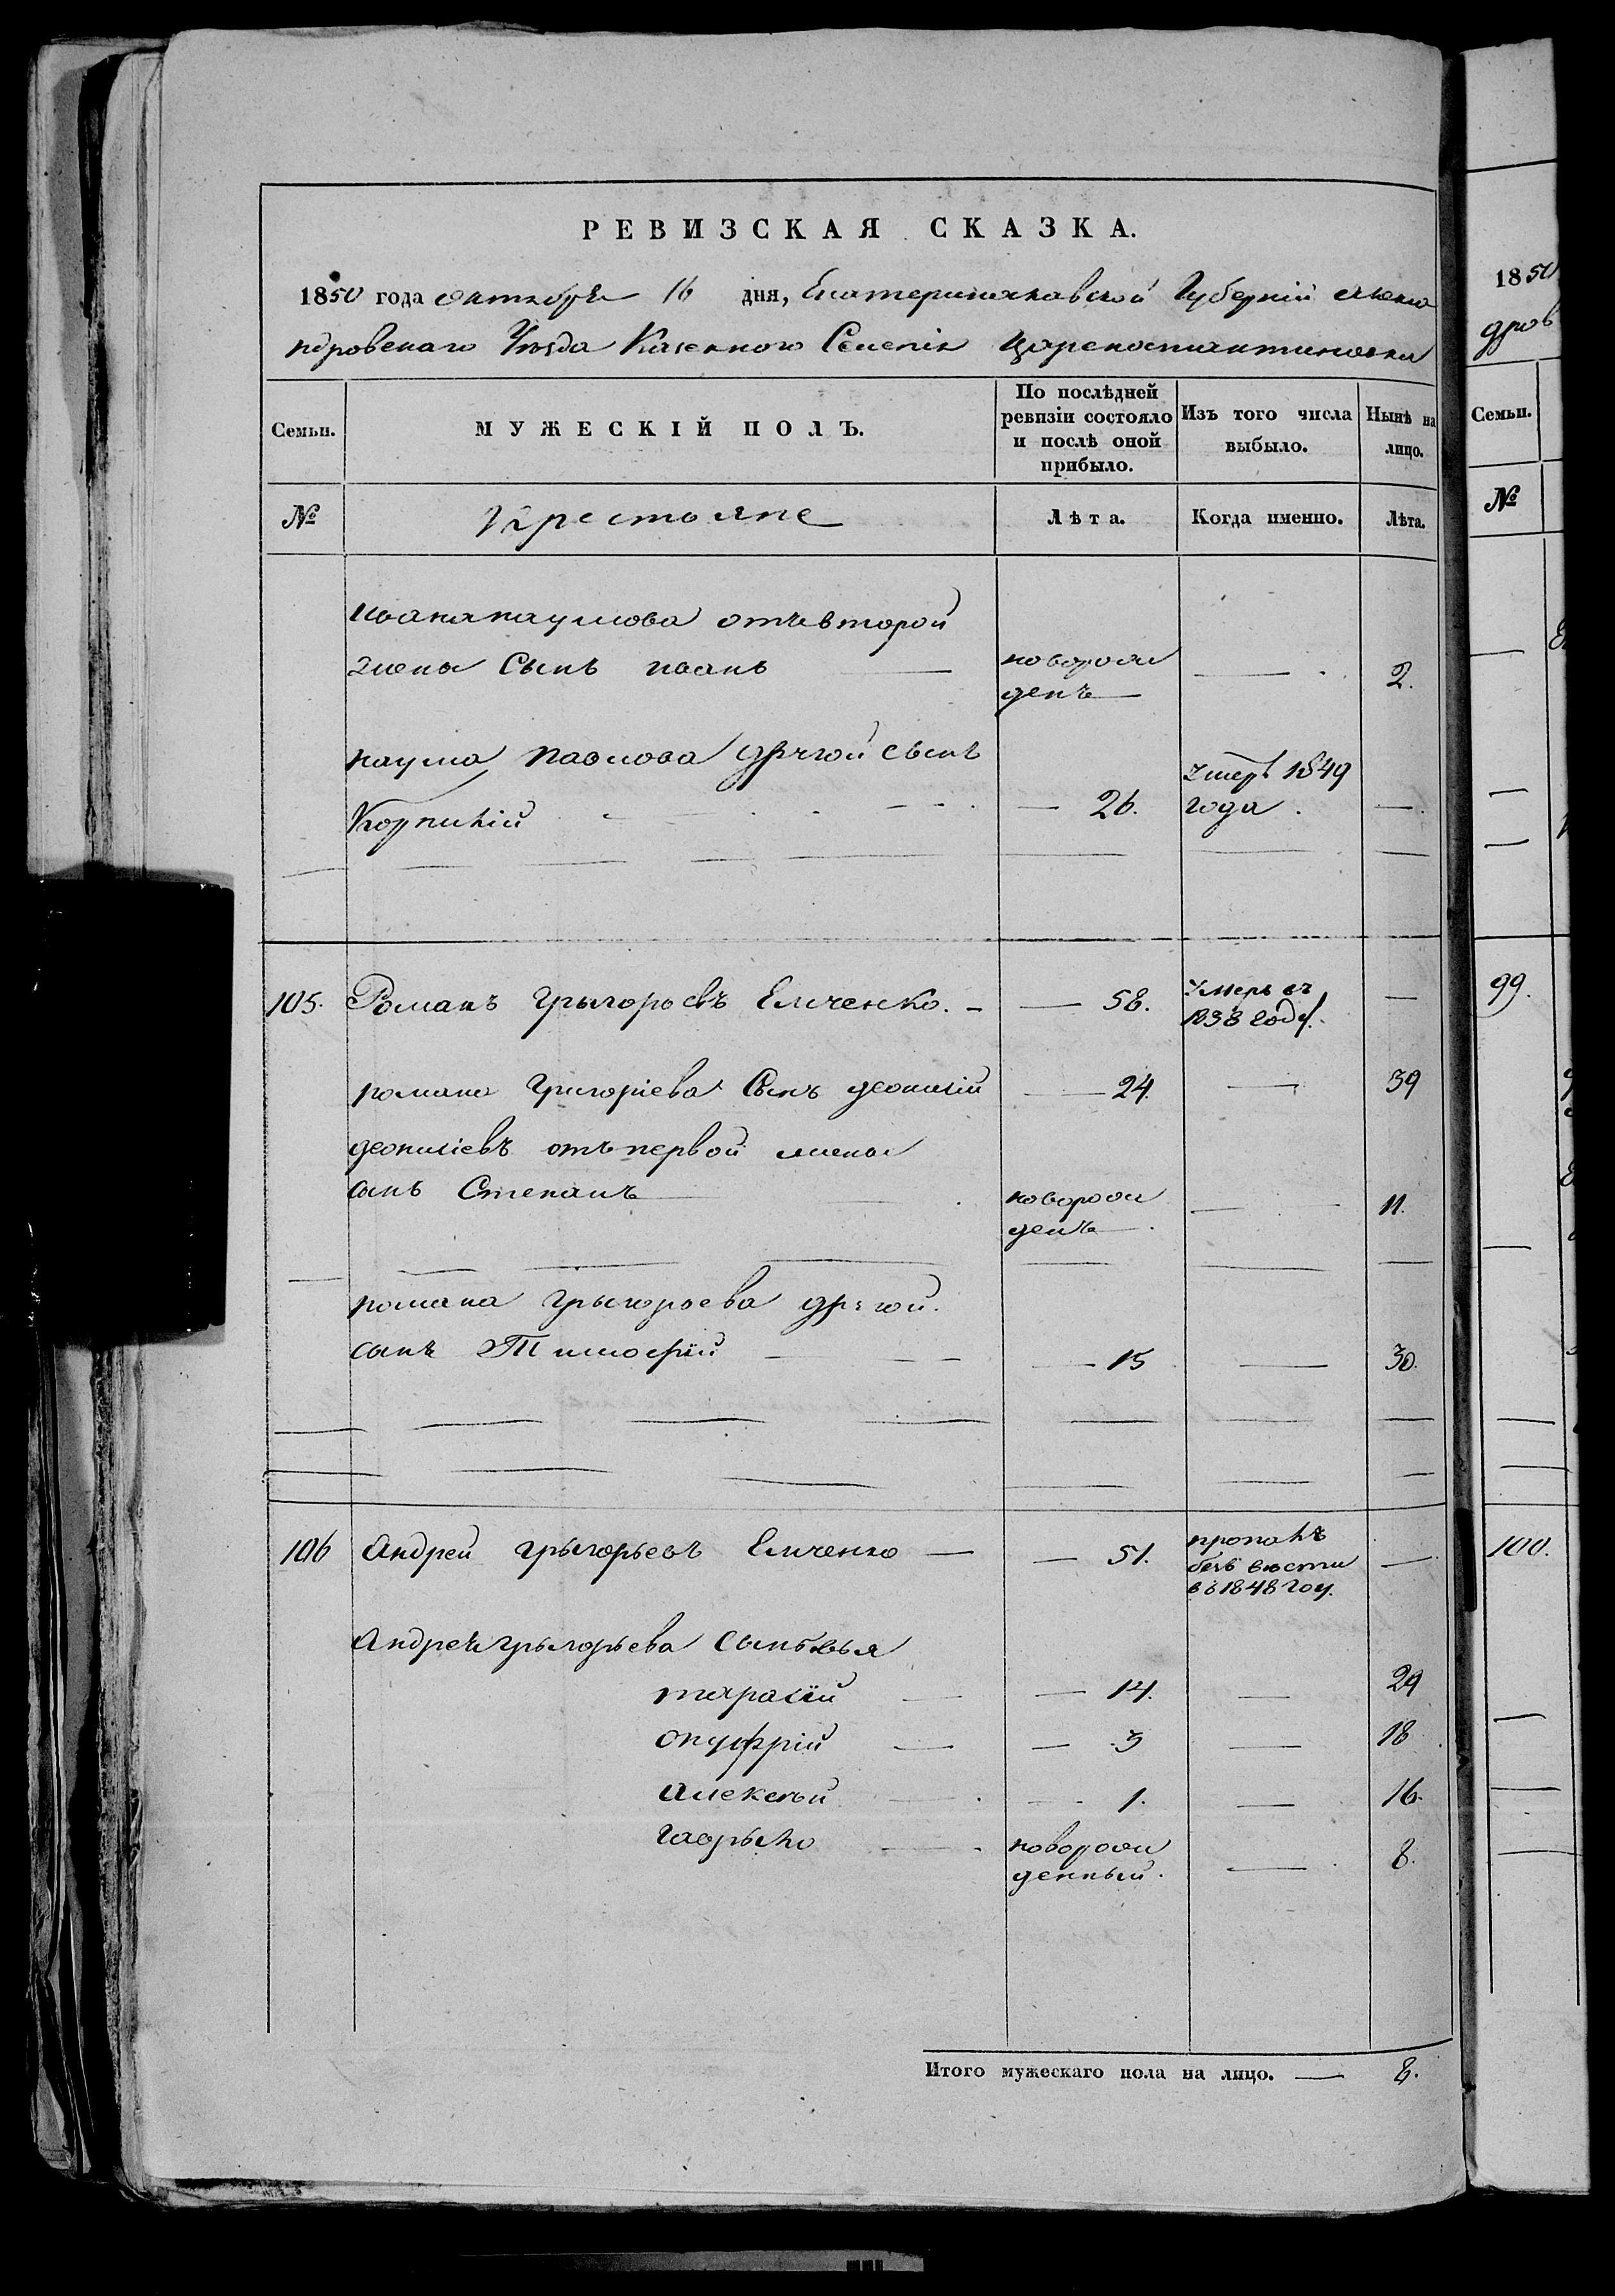 РЕВИЗСКАЯ СКАЗКА.
1850 года октября 16 дня, Екатеринославской Губерніи Алекса
ндровскаго Уѣзда Казенного Селенія Цареконстантиновки
Семьи. МУЖЕСКІЙ ПОЛЪ. По послѣдней ревизіи состояло и послѣ оной прибыло. Изъ того числа выбыло. Нынѣ на лицо.
№ Крестояне Лѣта. Когда именно. Лѣта.
Ивана наумова отъ второй
жены Сынъ иванъ новорож
денъ 2.
наума павлова другой сынъ умеръ 1849
Корнилій 26. года.
105. Романъ Грыгоровъ Елченко. 58. умеръ въ
1838 году.
романа Григоріева Сынъ деонисій 24. 39
деонисіевъ отъ первой жены
сынъ Степанъ новорож
денъ 11.
романа Грыгороева другой.
сынъ Тимофій 15 30.
106 Андрей Грыгорьевъ Елченко 51. пропалъ
безъ вести
въ 1848 году.
Андрея грыгорьева сыновья
тарасій 14. 29
онуфрій 3 18
Алексѣй 1. 16.
Гаврыло новорож
денный. 8.
Итого мужескаго пола на лицо. 8.
1850
дров
Семьи.
№
99.
100.